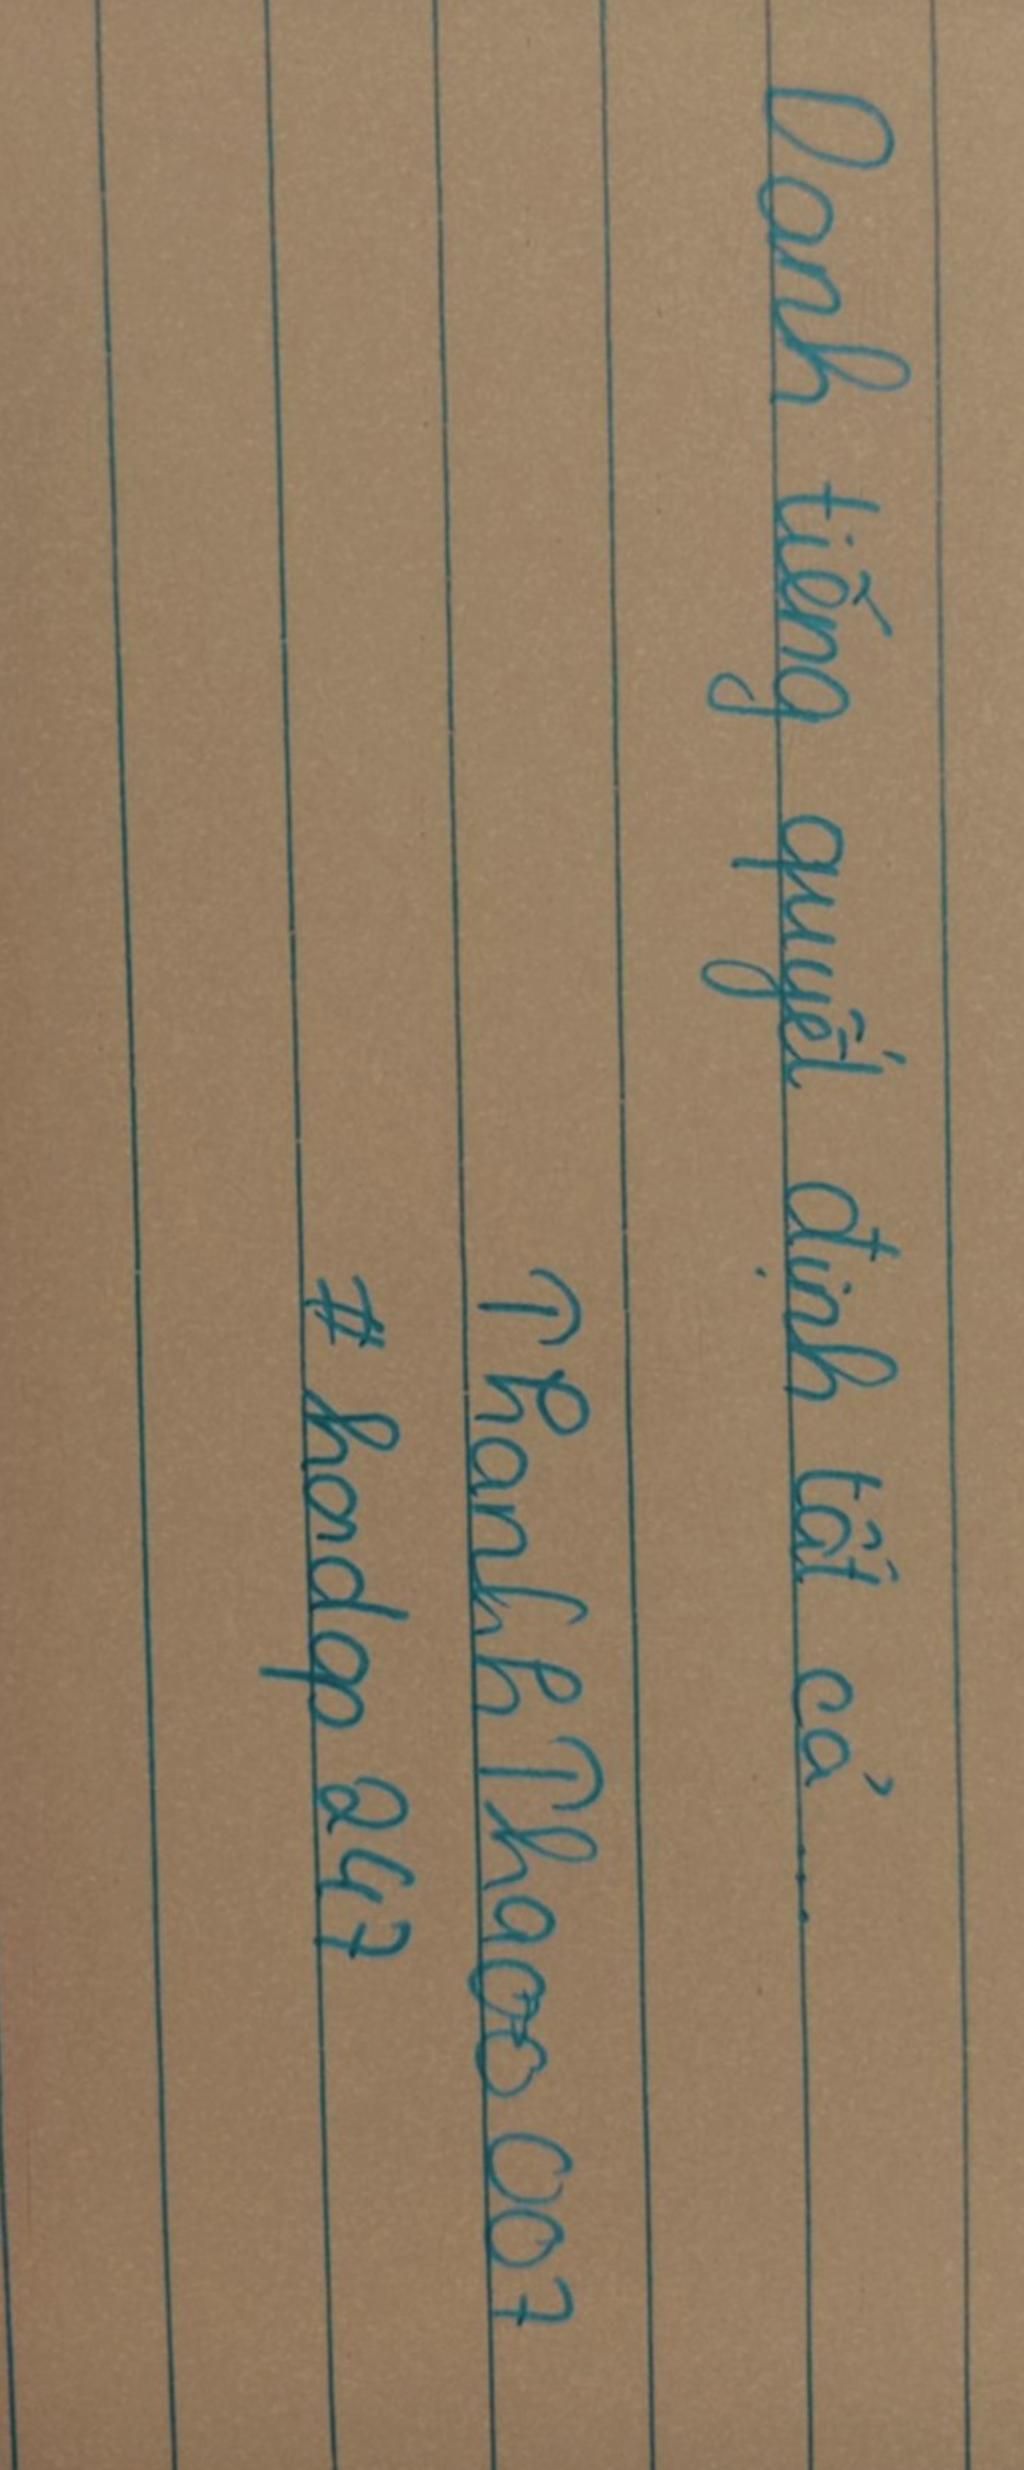 Danh tiếng quyết định tất cả...
ThanhhThaoo007
#hadqp247